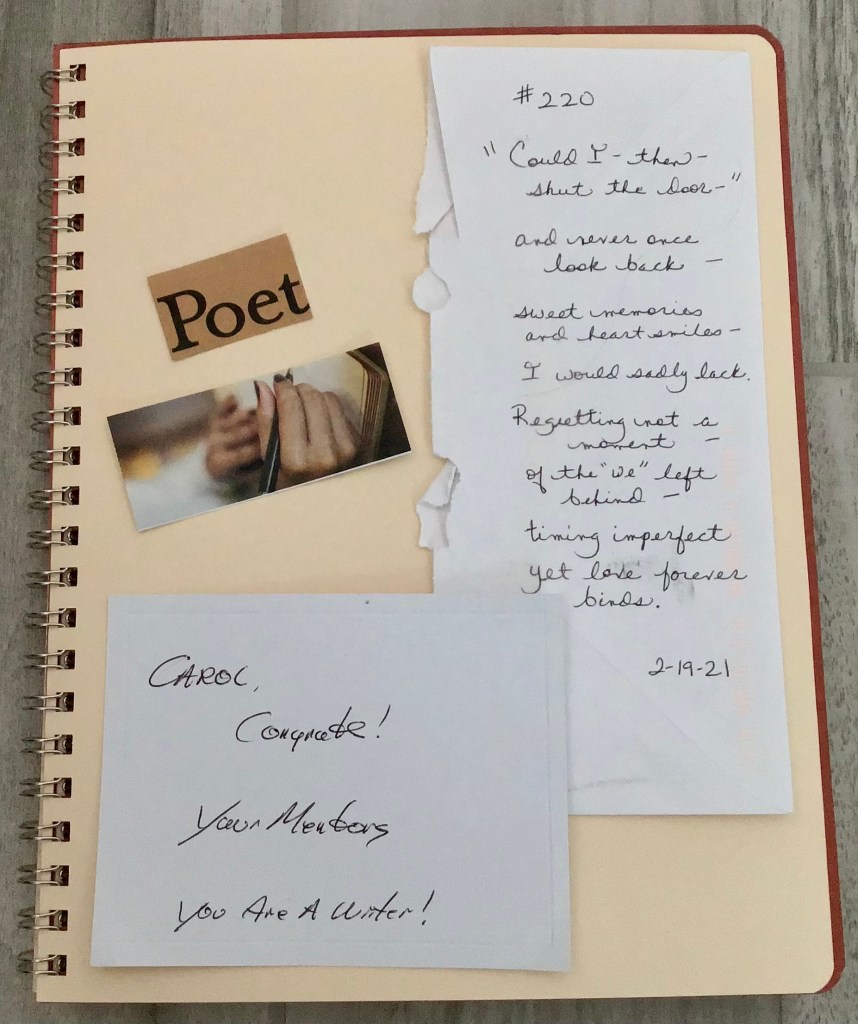 Poet
#220
"Could I - then -
shut the door - "
and never once
look back -
sweet memories
and heart smiles -
I would sadly lack.
Regretting not a
moment -
of the "we" left
behind -
timing imperfect
yet love forever
binds.
2-19-21
CAROL,
Congrats!
Your Mentors
You Are A Writer!